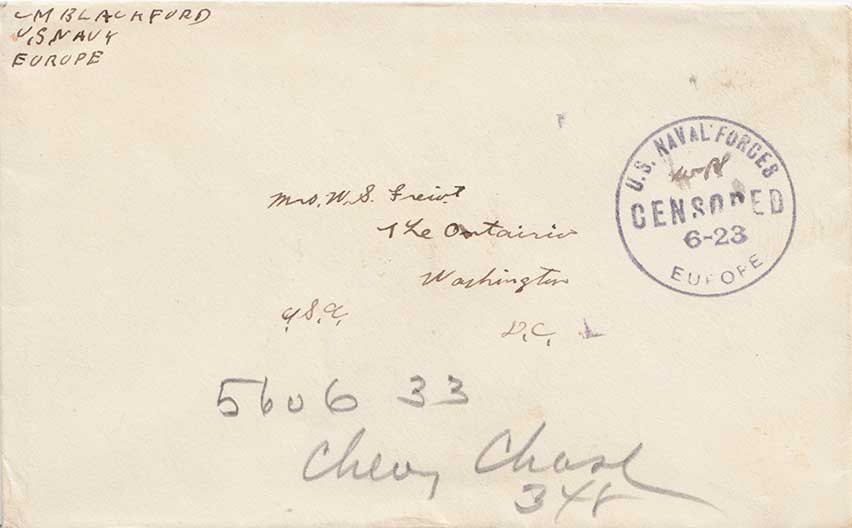 CM BLACKFORD
U.S. NAVY
EUROPE
U.S. NAVAL FORCES
CENSORED
6-23
EUROPE
Mrs. W. S.
The Ontairio
Washington
U.S.A. D.C.
5606 33
Chevy Chase
348